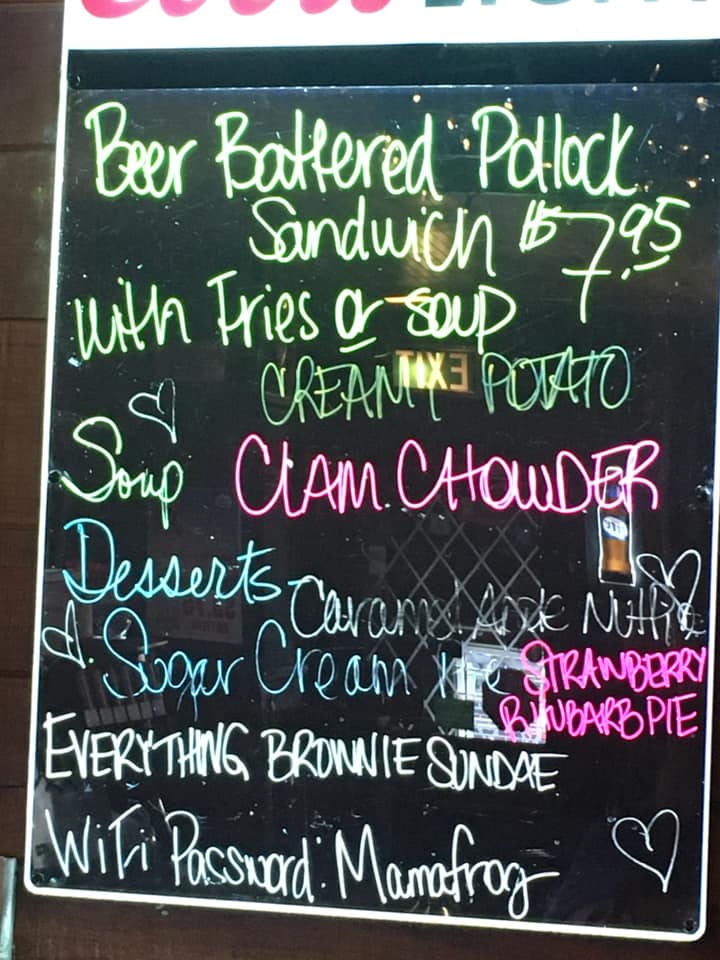 Coors LIGHT
Beer Battered Pollock
Sandwich $7.95
with Fries or soup
CREAMY POTATO
EXIT
Soup CLAM CHOWDER
Desserts Caramel Apple Nut Pie
Sugar Cream Pie STRAWBERRY
RHUBARB PIE
EVERYTHING BROWNIE SUNDAE
WiFi Password: Mamafrog